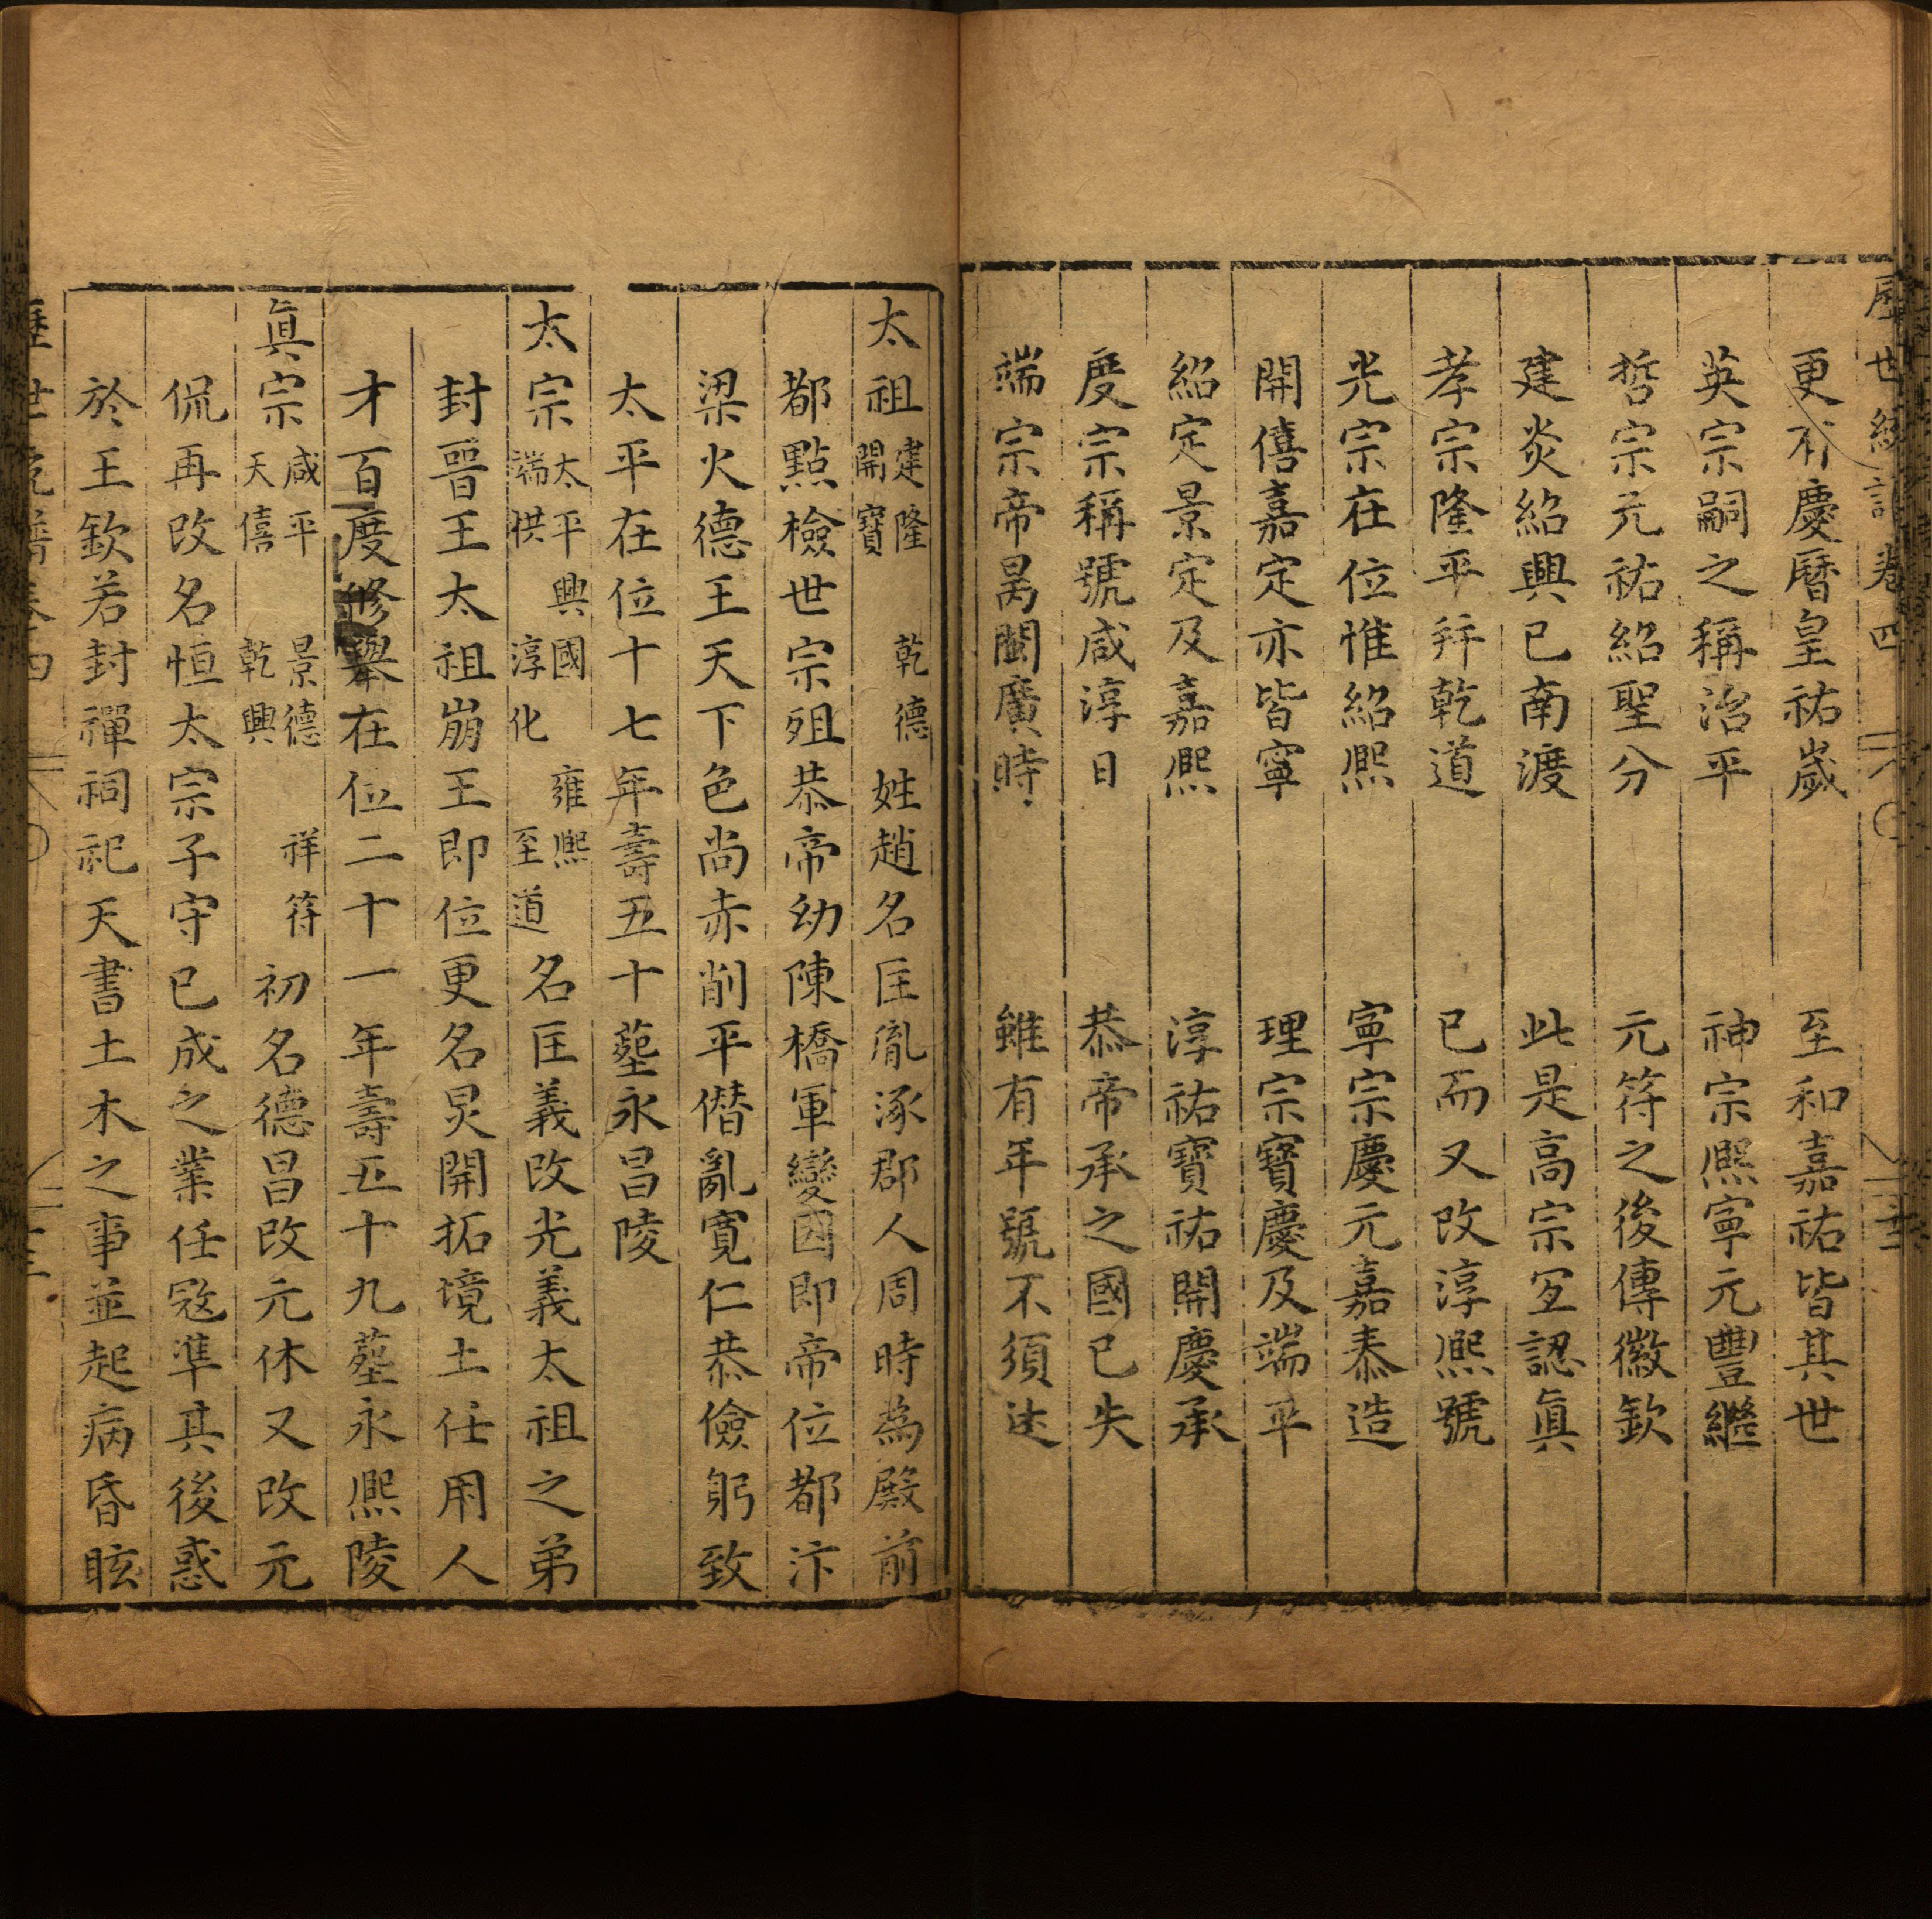 更有慶曆皇祐歲　至和嘉祐皆其世
英宗嗣之稱治平　神宗熙寧元豐繼
哲宗元祐紹聖分　元符之後傳徽欽
建炎紹興已南渡　此是高宗宜認眞
孝宗隆平幷乾道　已而又改淳熙號
光宗在位惟紹熙　寧宗慶元嘉泰造
開僖嘉定亦皆寧　理宗寶慶及端平
紹定景定及嘉熙　淳祐寶祐開慶承
度宗稱號咸淳日　恭帝承之國已失
端宗帝昺閩廣時　雖有年號不須述
太祖建隆　乾德開寶姓趙名匡胤涿郡人周時為殿前
都點檢世宗殂恭帝幼陳橋軍變因即帝位都汴
梁火德王天下色尚赤削平僭亂寬仁恭儉躬致
太平在位十七年壽五十塟永昌陵
太宗太平興國　雍熙端拱　淳化　至道名匡義改光義太祖之弟
封晉王太祖崩王即位更名炅開拓境土任用人
才百度修舉在位二十一年壽五十九塟永熙陵
眞宗咸平　景德　祥符天僖　乾興初名德昌改元休又改元
侃再改名恒太宗子守已成之業任寇準其後惑
於王欽若封禪祠祀天書土木之事並起病昏眩